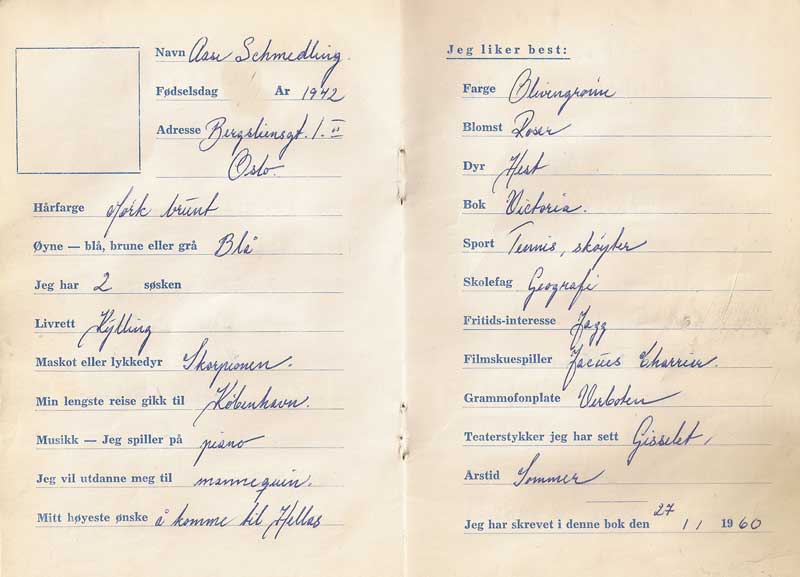 Navn Aase Schmedling.
Fødselsdag År 1942
Adresse Bergsliensgt. 1. II
Oslo.
Hårfarge Mørk brunt
Øyne — blå, brune eller grå Blå
Jeg har 2 søsken
Livrett Kylling
Maskot eller lykkedyr Skorpionen.
Min lengste reise gikk til København.
Musikk — Jeg spiller på piano
Jeg vil utdanne meg til mannequin.
Mitt høyeste ønske å komme til Hellas
Jeg liker best:
Farge Olivengrønn
Blomst Roser
Dyr Hest
Bok Victoria.
Sport Tennis, skøyter
Skolefag Geografi
Fritids-interesse Jazz
Filmskuespiller Jacues Charrier.
Grammofonplate Verboten
Teaterstykker jeg har sett Gisselet,
Årstid Sommer
Jeg har skrevet i denne bok den 27 / 1 1960